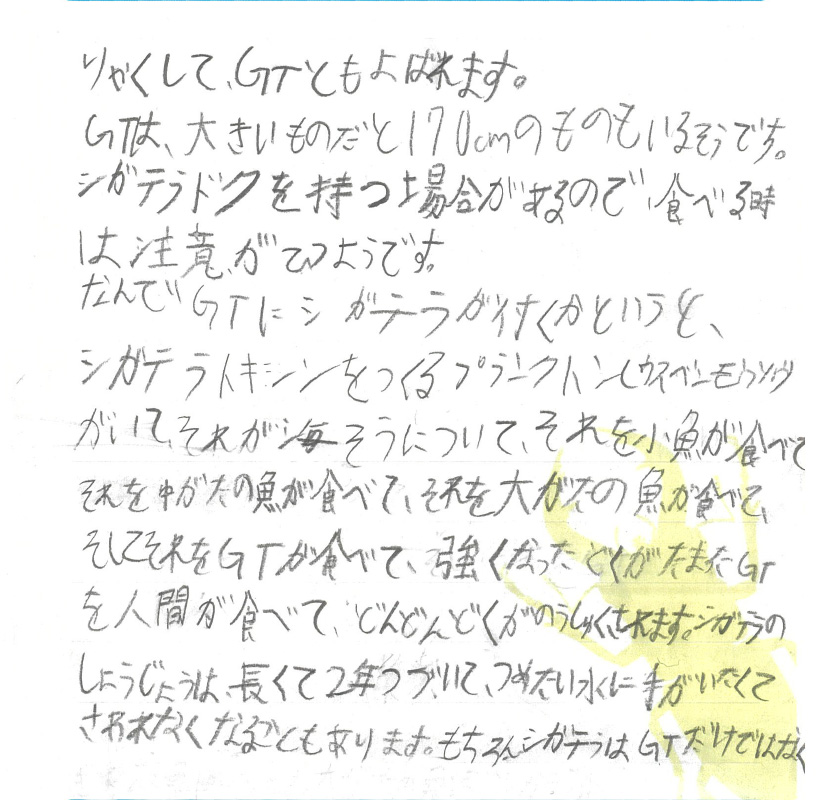 りゃくして、GTともよばれます。
GTは、大きいものだと170cmのものもいるそうです。
シガテラドクを持つ場合があるので、食べる時
は注意がひつようです。
なんでGTにシガテラが付くかというと、
シガテラトキシンをつくるプランクトン(ウズベンモウソウ
がいて、それが海そうについて、それを小魚が食べて
それを中がたの魚が食べて、それを大がたの魚が食べて、
そしてそれをGTが食べて、強くなったどくがたまたGT
を人間が食べて、どんどんどくがのうしゅくされます。シガテラの
しょうじょうは、長くて2年つづいて、つめたい水に手がいたくて
さわれなくなることもあります。もちろんシガテラはGTだけではなく